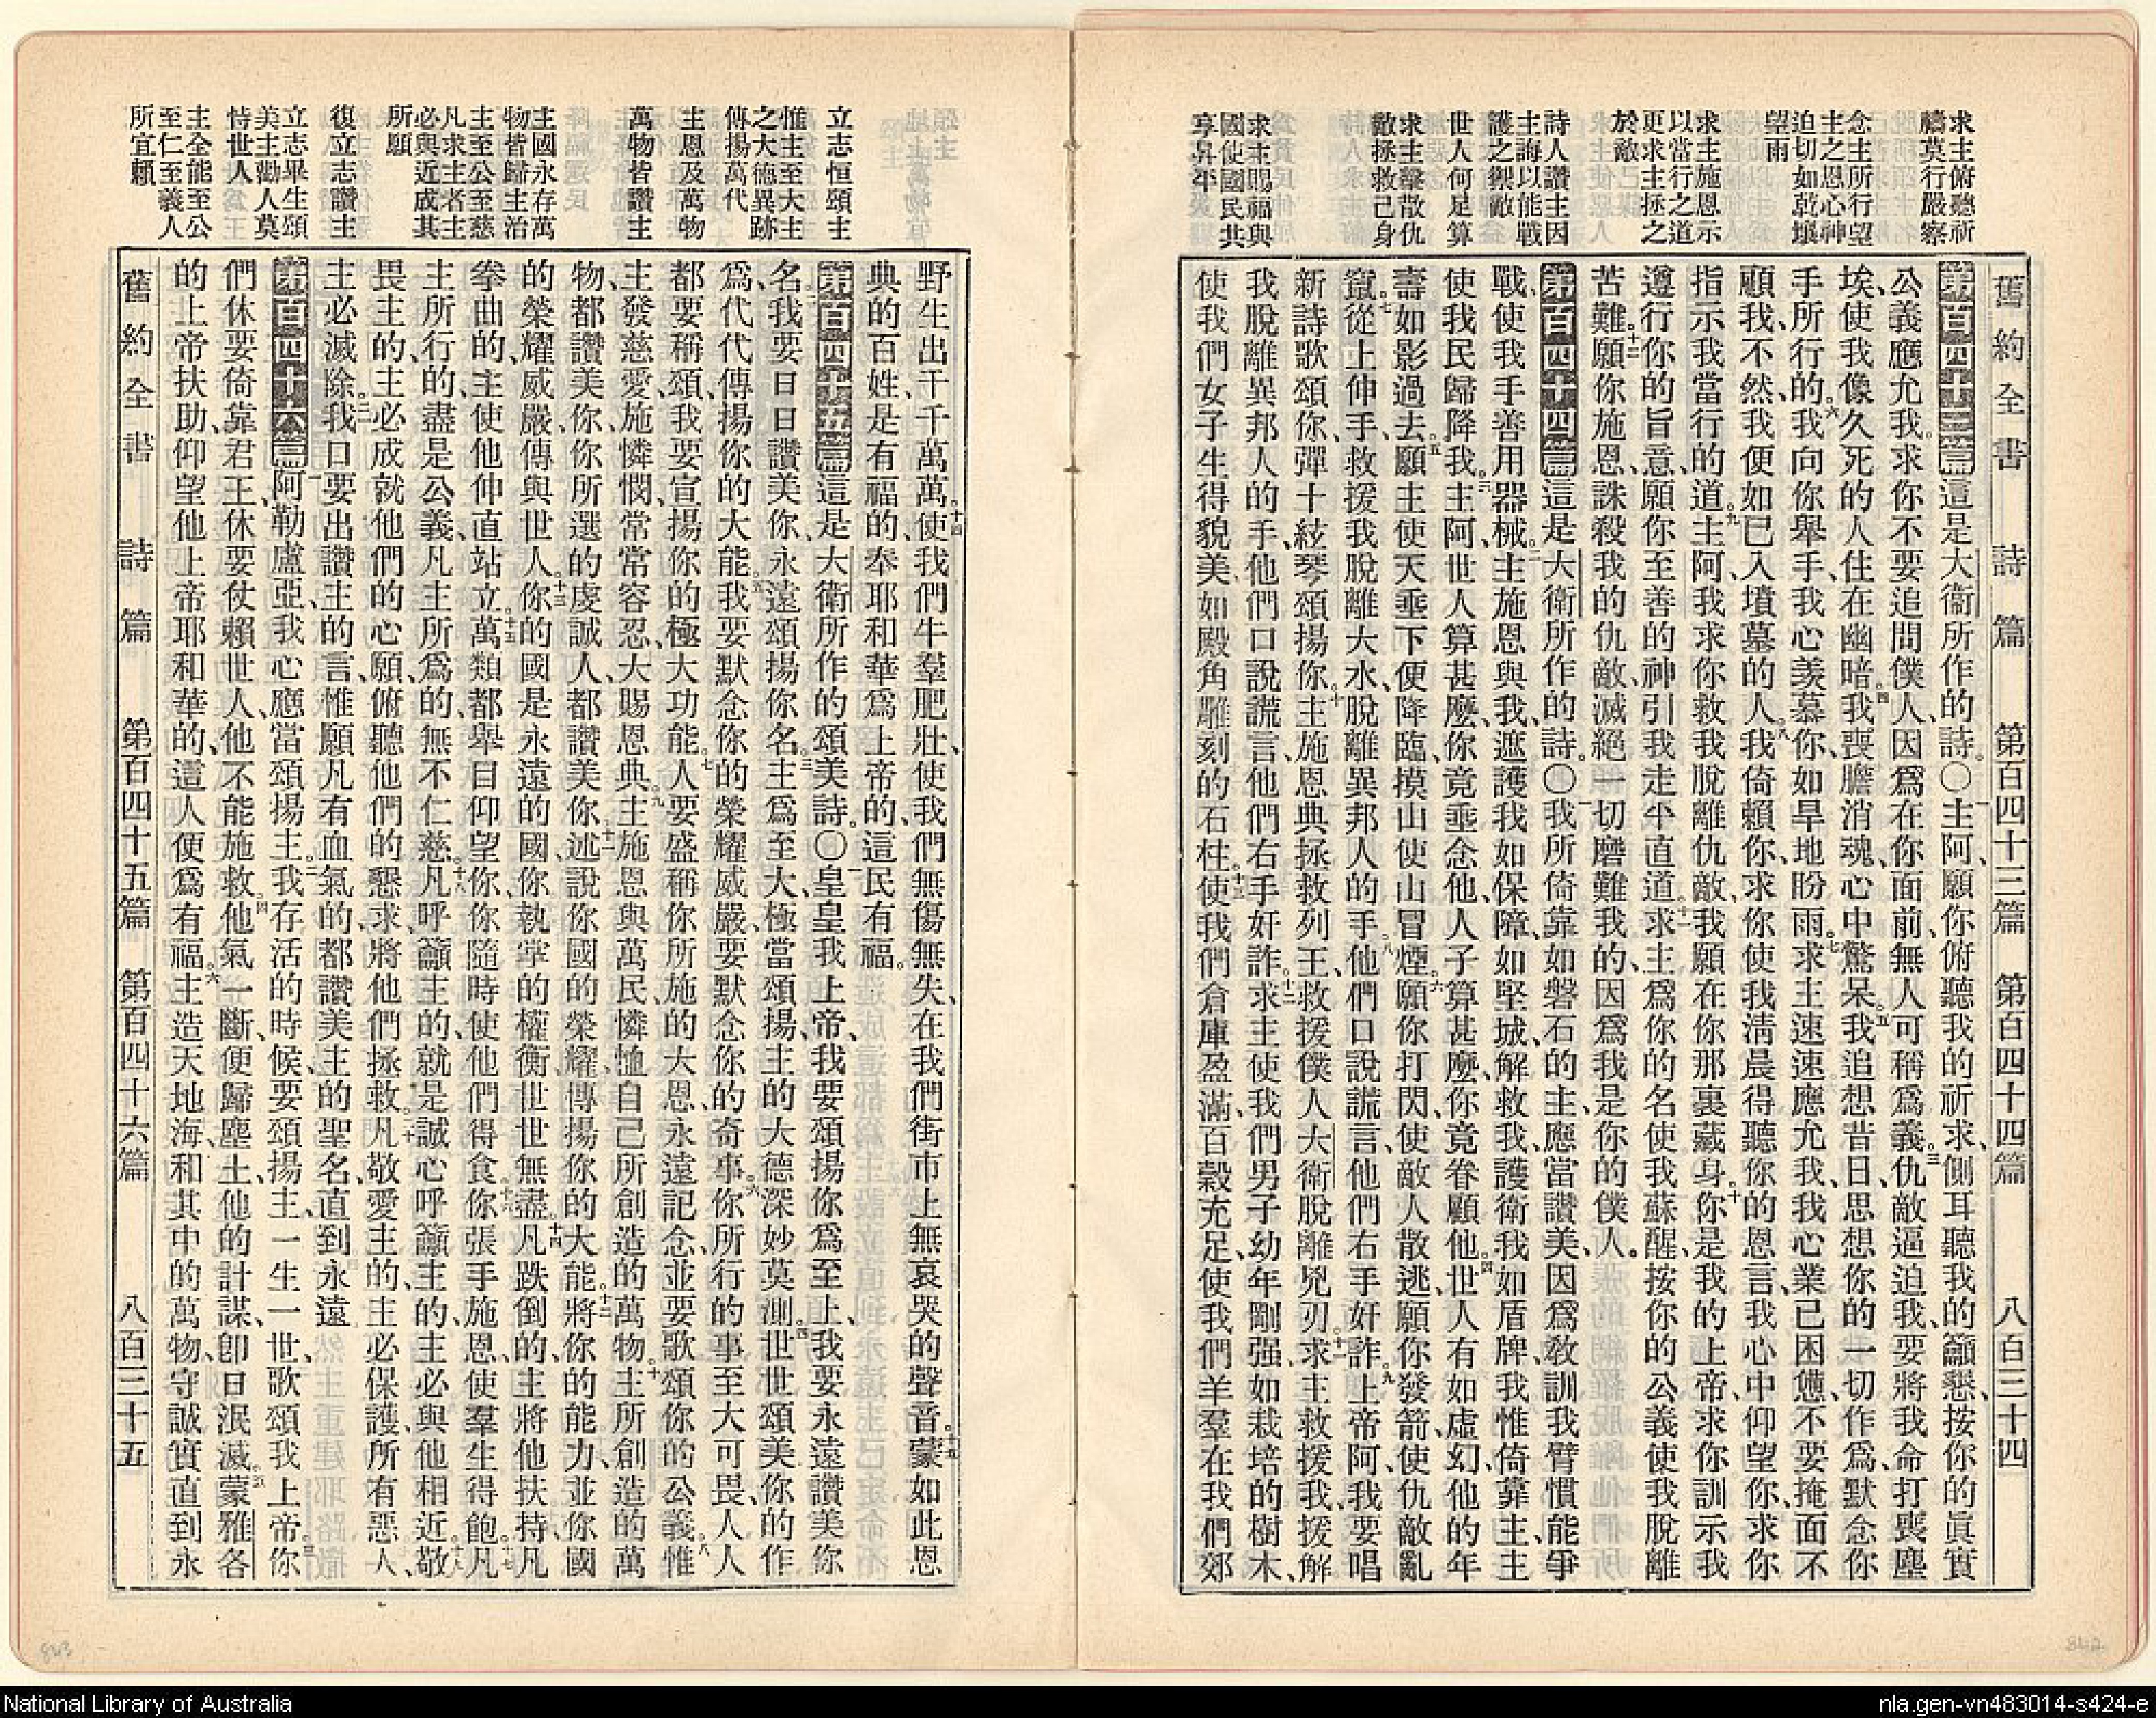 求主俯聽祈
禱莫行嚴察
念主所行望
主之恩心神
迫切如乾壤
望雨
求主施恩示
以當行之道
更求主拯之
於敵
詩人讚主因
主誨以能戰
護之禦敵
世人何足算
求主擊散仇
敵拯救己身
求主賜福與
國使國民共
享昇平
舊約全書 詩篇 第百四十三篇 第百四十四篇 八百三十四
第百四十三篇這是大衞所作的詩。○一主阿、願你俯聽我的祈求、側耳聽我的籲懇、按你的眞實
公義應允我。二求你不要追問僕人、因爲在你面前、無人可稱爲義。三仇敵逼迫我、要將我命打喪塵
埃、使我像久死的人住在幽暗。四我喪膽消魂、心中驚呆。五我追想昔日、思想你的一切作爲、默念你
手所行的。六我向你舉手、我心羨慕你、如旱地盼雨。七求主速速應允我、我心業已困憊、不要掩面不
顧我、不然、我便如已入墳墓的人。八我倚賴你、求你使我淸晨得聽你的恩言、我心中仰望你、求你
指示我當行的道。九主阿、我求你救我脫離仇敵、我願在你那裏藏身。十你是我的上帝、求你訓示我
遵行你的旨意、願你至善的神引我走平直道。十一求主爲你的名使我蘇醒、按你的公義使我脫離
苦難。十二願你施恩、誅殺我的仇敵、滅絕一切磨難我的、因爲我是你的僕人。
第百四十四篇這是大衞所作的詩。○一我所倚靠如磐石的主、應當讚美、因爲敎訓我臂慣能爭
戰、使我手善用器械。二主施恩與我、遮護我如保障、如堅城、解救我、護衞我如盾牌、我惟倚靠主、主
使我民歸降我。三主阿、世人算甚麽、你竟垂念他、人子算甚麽、你竟眷顧他。四世人有如虛幻、他的年
壽如影過去。五願主使天垂下、便降臨、摸山使山冒煙。六願你打閃、使敵人散逃、願你發箭、使仇敵亂
竄。七從上伸手、救援我脫離大水、脫離異邦人的手。八他們口說謊言、他們右手奸詐。九上帝阿、我要唱
新詩歌頌你、彈十絃琴頌揚你。十主施恩典拯救列王、救援僕人大衞脫離兇刃。十一求主救援我、援解
我脫離異邦人的手、他們口說謊言、他們右手奸詐。十二求主使我們男子幼年剛强、如栽培的樹木、
使我們女子生得貌美、如殿角雕刻的石柱。十三使我們倉庫盈滿、百穀充足、使我們羊羣在我們郊
立志恒頌主
惟主至大主
之大德異跡
傳揚萬代
主恩及萬物
萬物皆讚主
主國永存萬
物皆歸主治
主至公至慈
凡求主者主
必與近成其
所願
復立志讚主
立志畢生頌
美主勸人莫
恃世人
主全能至公
至仁至義人
所宜賴
野生出千千萬萬。十四使我們牛羣肥壯、使我們無傷無失、在我們街市上無哀哭的聲音。十五蒙如此恩
典的百姓、是有福的、奉耶和華爲上帝的、這民有福。
第百四十五篇這是大衞所作的頌美詩。○一皇皇我上帝、我要頌揚你爲至上、我要永遠讚美你
名。二我要日日讚美你、永遠頌揚你名。三主爲至大、極當頌揚、主的大德深妙莫測。四世世頌美你的作
爲、代代傳揚你的大能。五我要默念你的榮耀威嚴、要默念你的奇事。六你所行的事至大可畏、人人
都要稱頌、我要宣揚你的極大功能。七人要盛稱你所施的大恩、永遠記念、並要歌頌你的公義。八惟
主發慈愛、施憐憫、常常容忍、大賜恩典。九主施恩與萬民、憐恤自己所創造的萬物。十主所創造的萬
物、都讚美你、你所選的虔誠人、都讚美你。十一述說你國的榮耀、傳揚你的大能。十二將你的能力、並你國
的榮耀威嚴、傳與世人。十三你的國是永遠的國、你執掌的權衡、世世無盡。十四凡跌倒的、主將他扶持、凡
拳曲的、主使他伸直站立。十五萬類都舉目仰望你、你隨時使他們得食。十六你張手施恩、使羣生得飽。十七凡
主所行的、盡是公義、凡主所爲的、無不仁慈。十八凡呼籲主的、就是誠心呼籲主的、主必與他相近。十九敬
畏主的、主必成就他們的心願、俯聽他們的懇求、將他們拯救。二十凡敬愛主的、主必保護、所有惡人、
主必滅除。二一我口要出讚主的言、惟願凡有血氣的、都讚美主的聖名、直到永遠
第百四十六篇一阿勒盧亞、我心應當頌揚主。二我存活的時候、要頌揚主、一生一世、歌頌我上帝。三你
們休要倚靠君王、休要仗賴世人、他不能施救。四他氣一斷、便歸塵土、他的計謀、卽日泯滅。五蒙雅各
的上帝扶助、仰望他上帝耶和華的、這人便爲有福。六主造天地海、和其中的萬物、守誠實直到永
舊約全書 詩篇 第百四十五篇 第百四十六篇 八百三十五
843
842
National Library of Australia
nla.gen-vn483014-s424-e